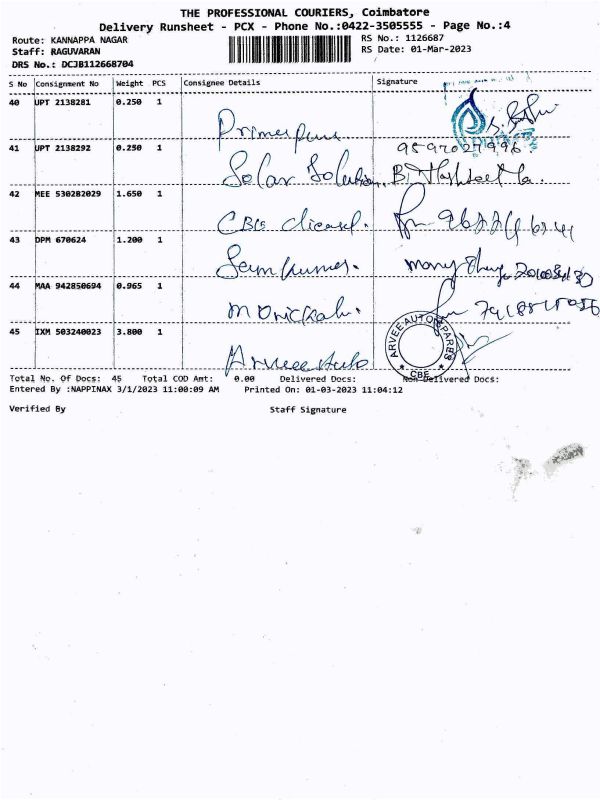 THE PROFESSIONAL COURIERS, Coimbatore
Delivery Runsheet - PCX - Phone No.:0422-3505555 - Page No.:4
Route: KANNAPPA NAGAR
RS No.: 1126687
Staff: RAGUVARAN
RS Date: 01-Mar-2023
DRS No.: DCJB112668704
S No Consignment No Weight PCS Consignee Details Signature
40 UPT 2138281 0.250 1
41 UPT 2138292 0.250 1
Solar Solution.
42 MEE 530282029 1.650 1
43 DPM 670624 1.200 1
44 MAA 942850694 0.965 1
45 IXM 503240023 3.800 1
Arvee Auto
ARVEE AUTO SPARES
CBE
Total No. Of Docs: 45 Total COD Amt: 0.00 Delivered Docs: Non-Delivered Docs:
Entered By :NAPPINAX 3/1/2023 11:00:09 AM Printed On: 01-03-2023 11:04:12
Verified By Staff Signature